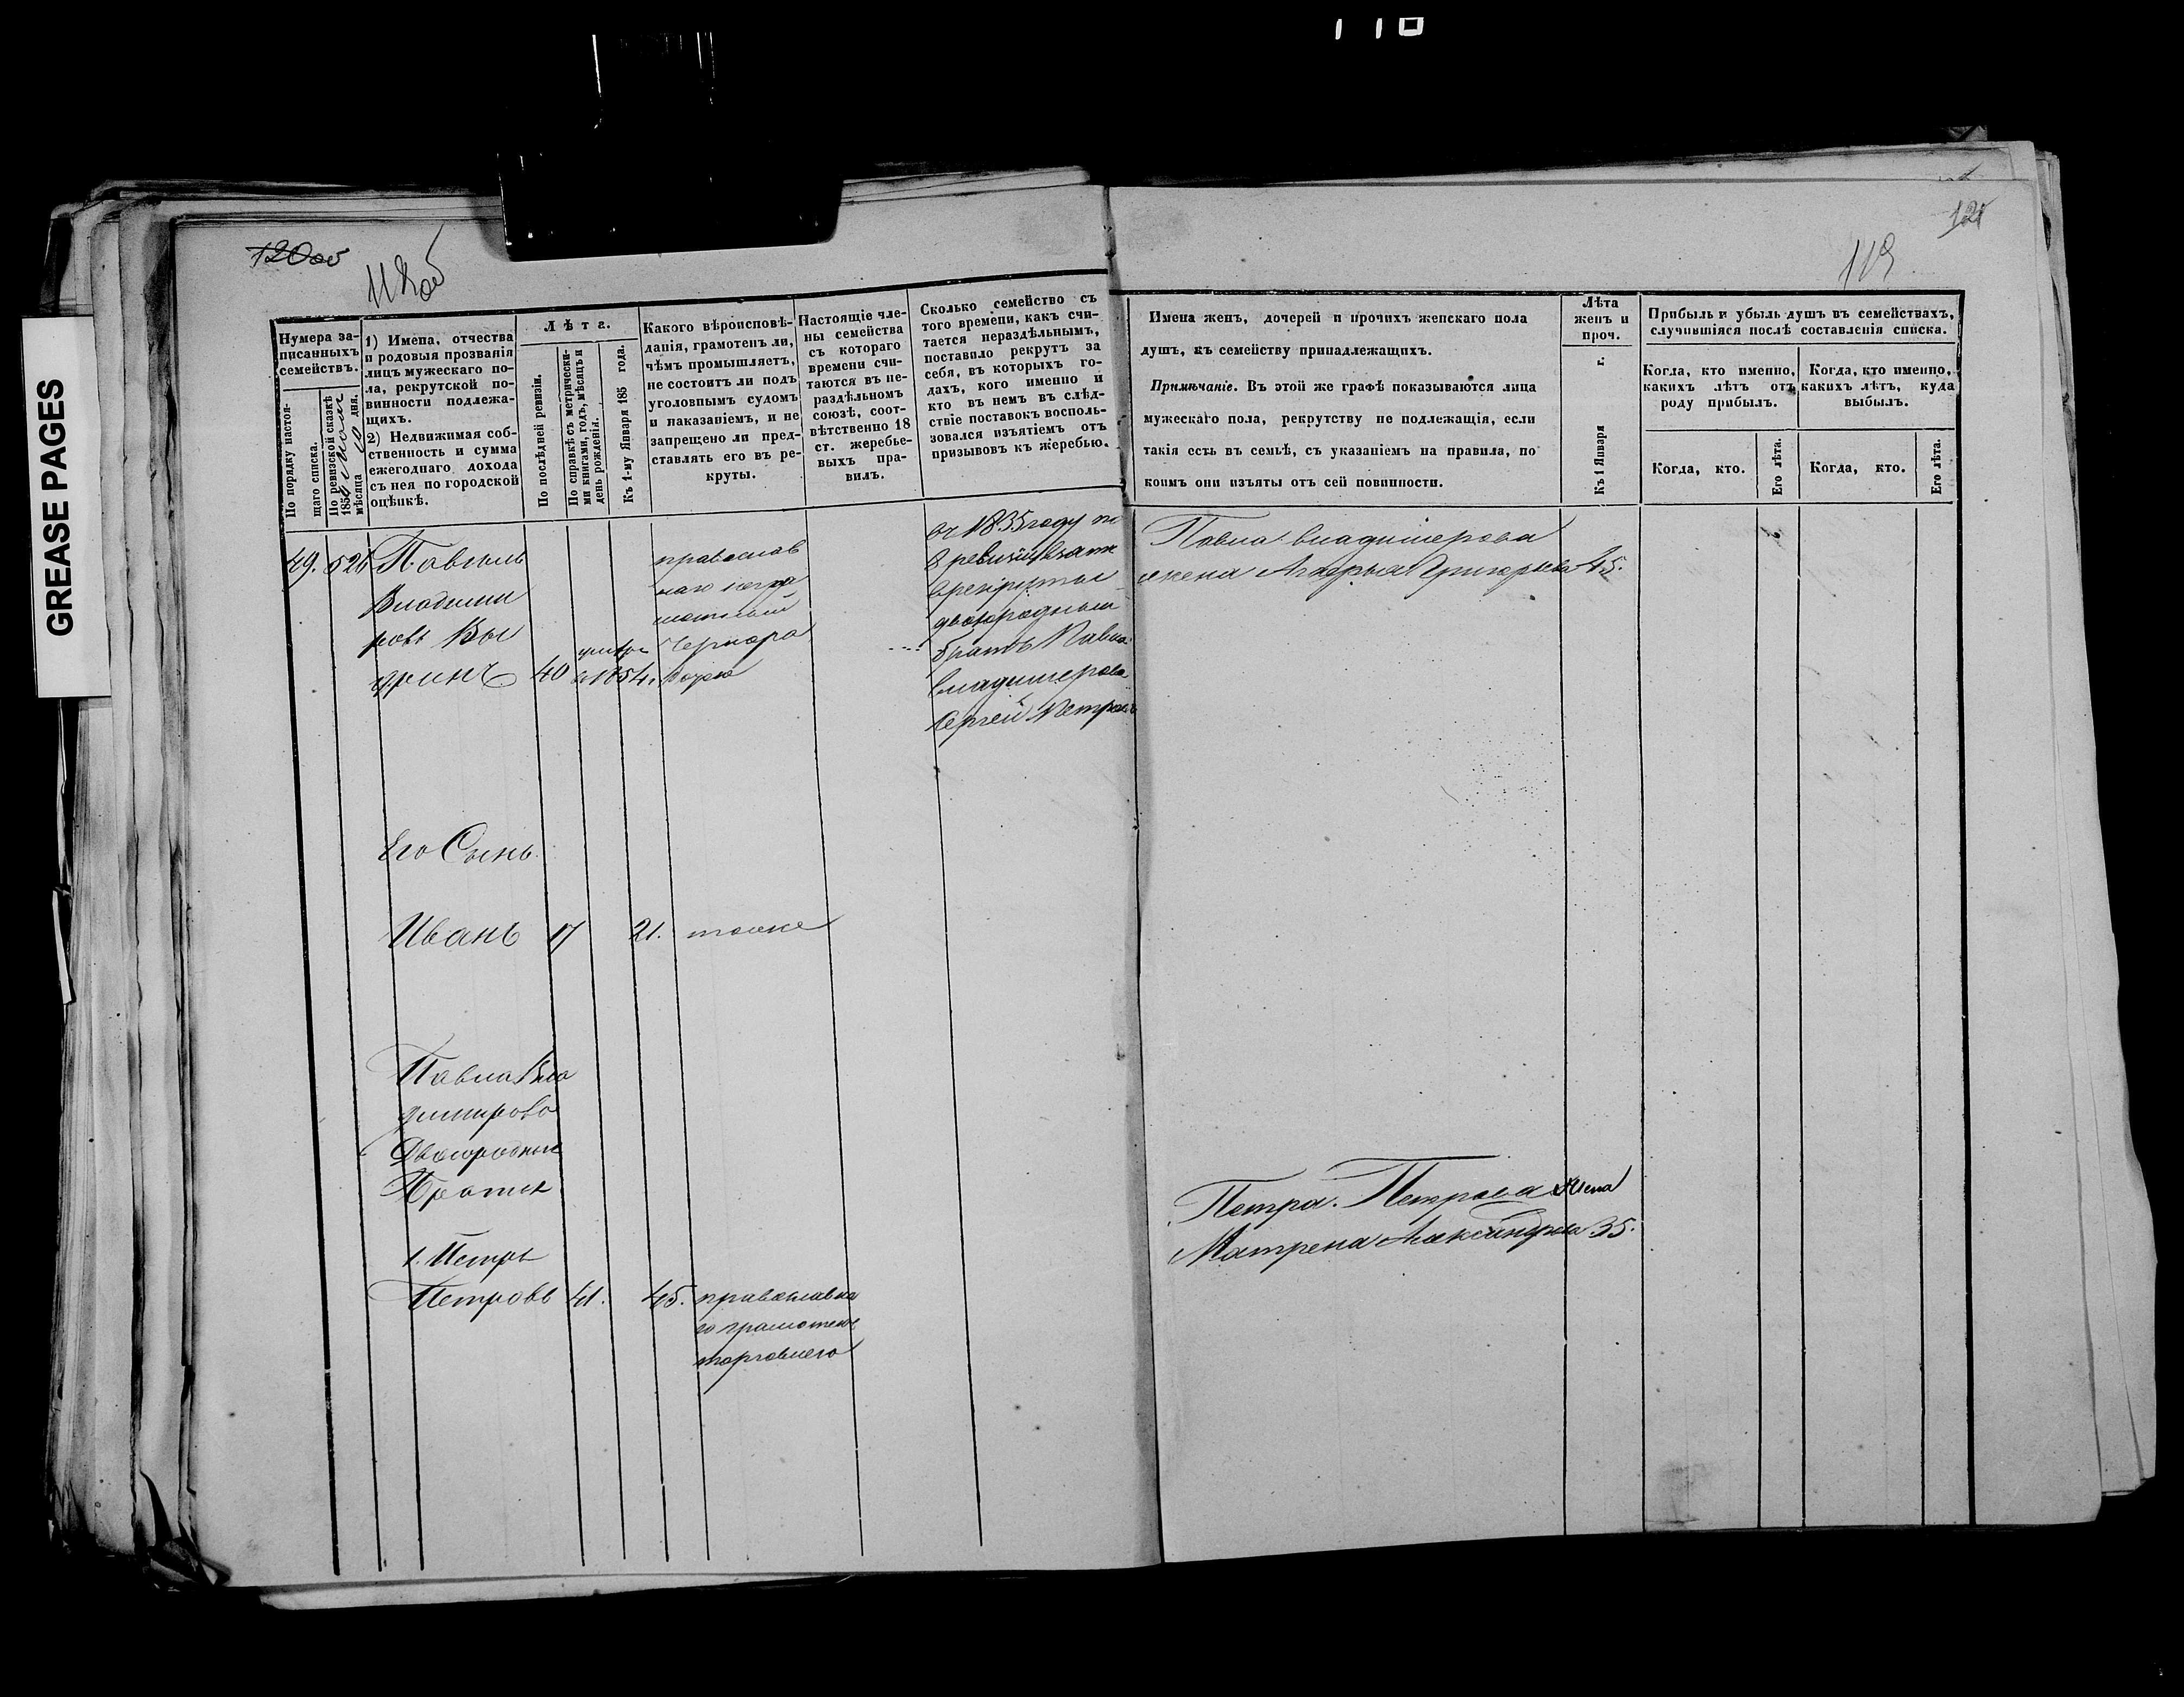 GREASE PAGES
118
120об
118об
Нумера записанныхъ семействъ.
По порядку настоящаго списка.
По ревизской сказкѣ 1850 мѣсяца 10 дня.
1) Имена, отчества
и родовыя прозванія
лицъ мужескаго по-
ла, рекрутской по-
винности подлежа-
щихъ.
2) Недвижимая соб-
ственность и сумма
ежегоднаго дохода
съ нея по городской
оцѣнкѣ.
Лѣта.
По послѣдней ревизіи.
По справкѣ съ метрически-
ми книгами, годъ, мѣсяцъ и
день рожденія.
Къ 1-му Января 185 года.
Какого вѣроисповѣ-
данія, грамотенъ ли,
чѣмъ промышляетъ,
не состоитъ ли подъ
уголовнымъ судомъ
и наказаніемъ, и не
запрещено ли пред-
ставлять его въ ре-
круты.
Настоящіе чле-
ны семейства
съ котораго
времени счи-
таются въ не-
раздѣльномъ
союзѣ, соот-
вѣтственно 18
ст. жеребье-
выхъ пра-
вилъ.
Сколько семейство съ
того времени, какъ счи-
тается нераздѣльнымъ,
поставило рекрутъ за
себя, въ которыхъ го-
дахъ, кого именно и
кто въ немъ въ слѣд-
ствіе поставокъ восполь-
зовался изъятіемъ отъ
призывовъ къ жеребью.
49. 526 Павелъ
Владими
ровъ Вы
дринъ 40 умеръ
в 1854.
православ
наго негра
мотный
Чернора
бочею
въ 1835 году по
8 ревизіи взятъ
в рекруты
двоюродный
братъ Павла
Владимерова
Сергей Петровъ
Его Сынъ
Иванъ 17 21. тоже
Павла Вла
димирова
Двоюродные
Братья
1. Петръ
Петровъ 41. 45. православна
го грамотенъ
торговлею
121
119
Имена женъ, дочерей и прочихъ женскаго пола
душъ, къ семейству принадлежащихъ.
Примѣчаніе. Въ этой же графѣ показываются лица
мужескаго пола, рекрутству не подлежащія, если
такія есть въ семьѣ, съ указаніемъ на правила, по
коимъ они изъяты отъ сей повинности.
Лѣта
женъ и
проч.
Къ 1 Января г.
Прибыль и убыль душъ въ семействахъ,
случившіяся послѣ составленія списка.
Когда, кто именно,
какихъ лѣтъ отъ
роду прибылъ.
Когда, кто именно,
какихъ лѣтъ, куда
выбылъ.
Когда, кто.
Его лѣта.
Когда, кто.
Его лѣта.
Павла Владимерова
жена Григорьева 45.
Петра Петрова жена
Матрена Александрова 35.